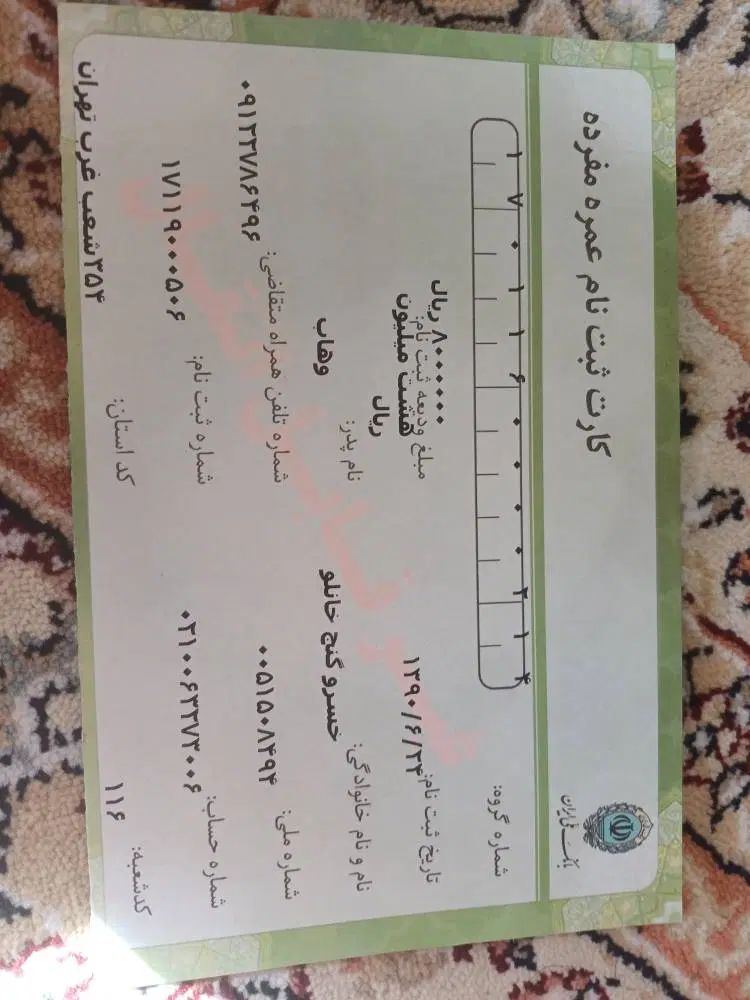 بانک ملی ایران
کارت ثبت نام عمره مفرده
شماره گروه: ۱ ۷ ۰ ۱ ۱ ۶ ۰ ۰ ۰ ۰ ۲ ۱ ۴
تاریخ ثبت نام: ۱۳۹۰/۶/۲۴ مبلغ ودیعه ثبت نام: ۸۰۰۰۰۰۰ ریال
هشت میلیون
ریال
نام و نام خانوادگی: خسرو گنج خانلو نام پدر: وهاب
شماره ملی: ۰۰۵۱۵۰۸۴۹۴ شماره تلفن همراه متقاضی: ۰۹۱۲۲۷۸۶۴۹۶
شماره حساب: ۰۲۱۰۰۶۳۳۷۳۰۰۶ شماره ثبت نام: ۱۷۱۱۹۰۰۰۵۰۶
کدشعبه: ۱۱۶ کد استان: ۳۵۴شعب غرب تهران